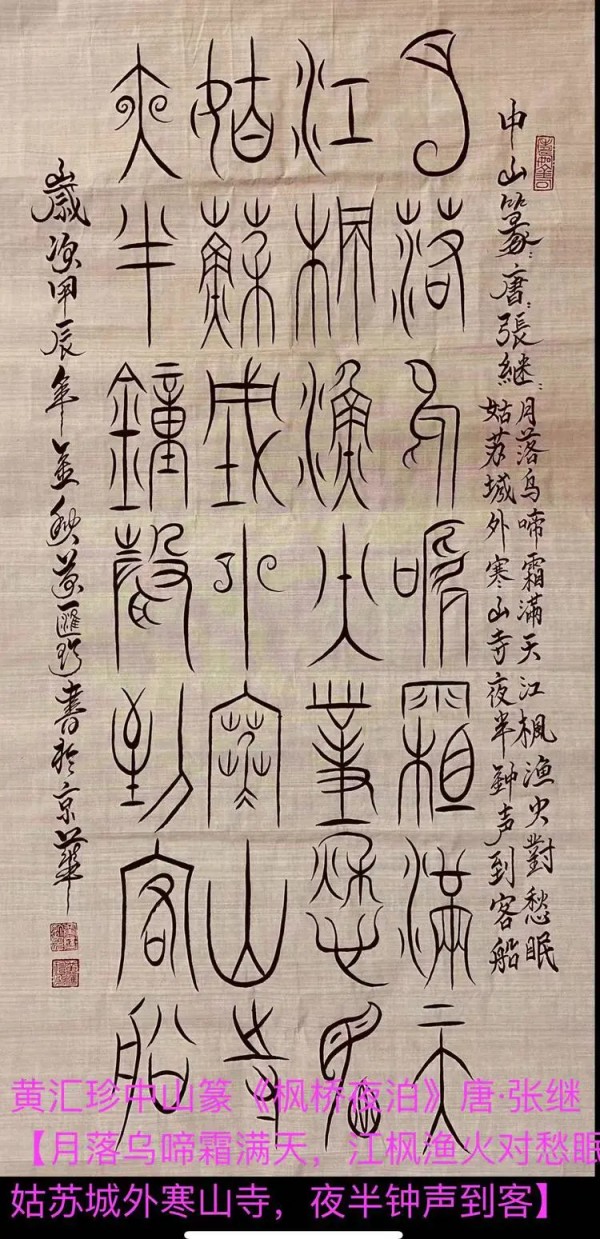 中山篆:唐:張継:月落烏啼霜滿天江楓渔火對愁眠
姑苏城外寒山寺夜半鈡声到客船
月落烏啼霜滿天
江楓漁火對愁眠
姑蘇城外寒山寺
夜半鐘聲到客船
歲次甲辰年孟秋黃匯珍書於京華
黄汇珍中山篆《枫桥夜泊》唐·张继
【月落乌啼霜满天，江枫渔火对愁眠
姑苏城外寒山寺，夜半钟声到客】